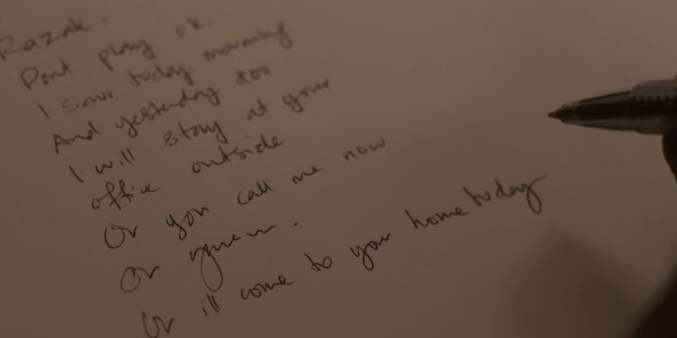 Razak.
Dont play ok.
I saw today morning
And yesterday too
I will stay at your
office outside
Or you call me now
Or
Or ill come to your home today